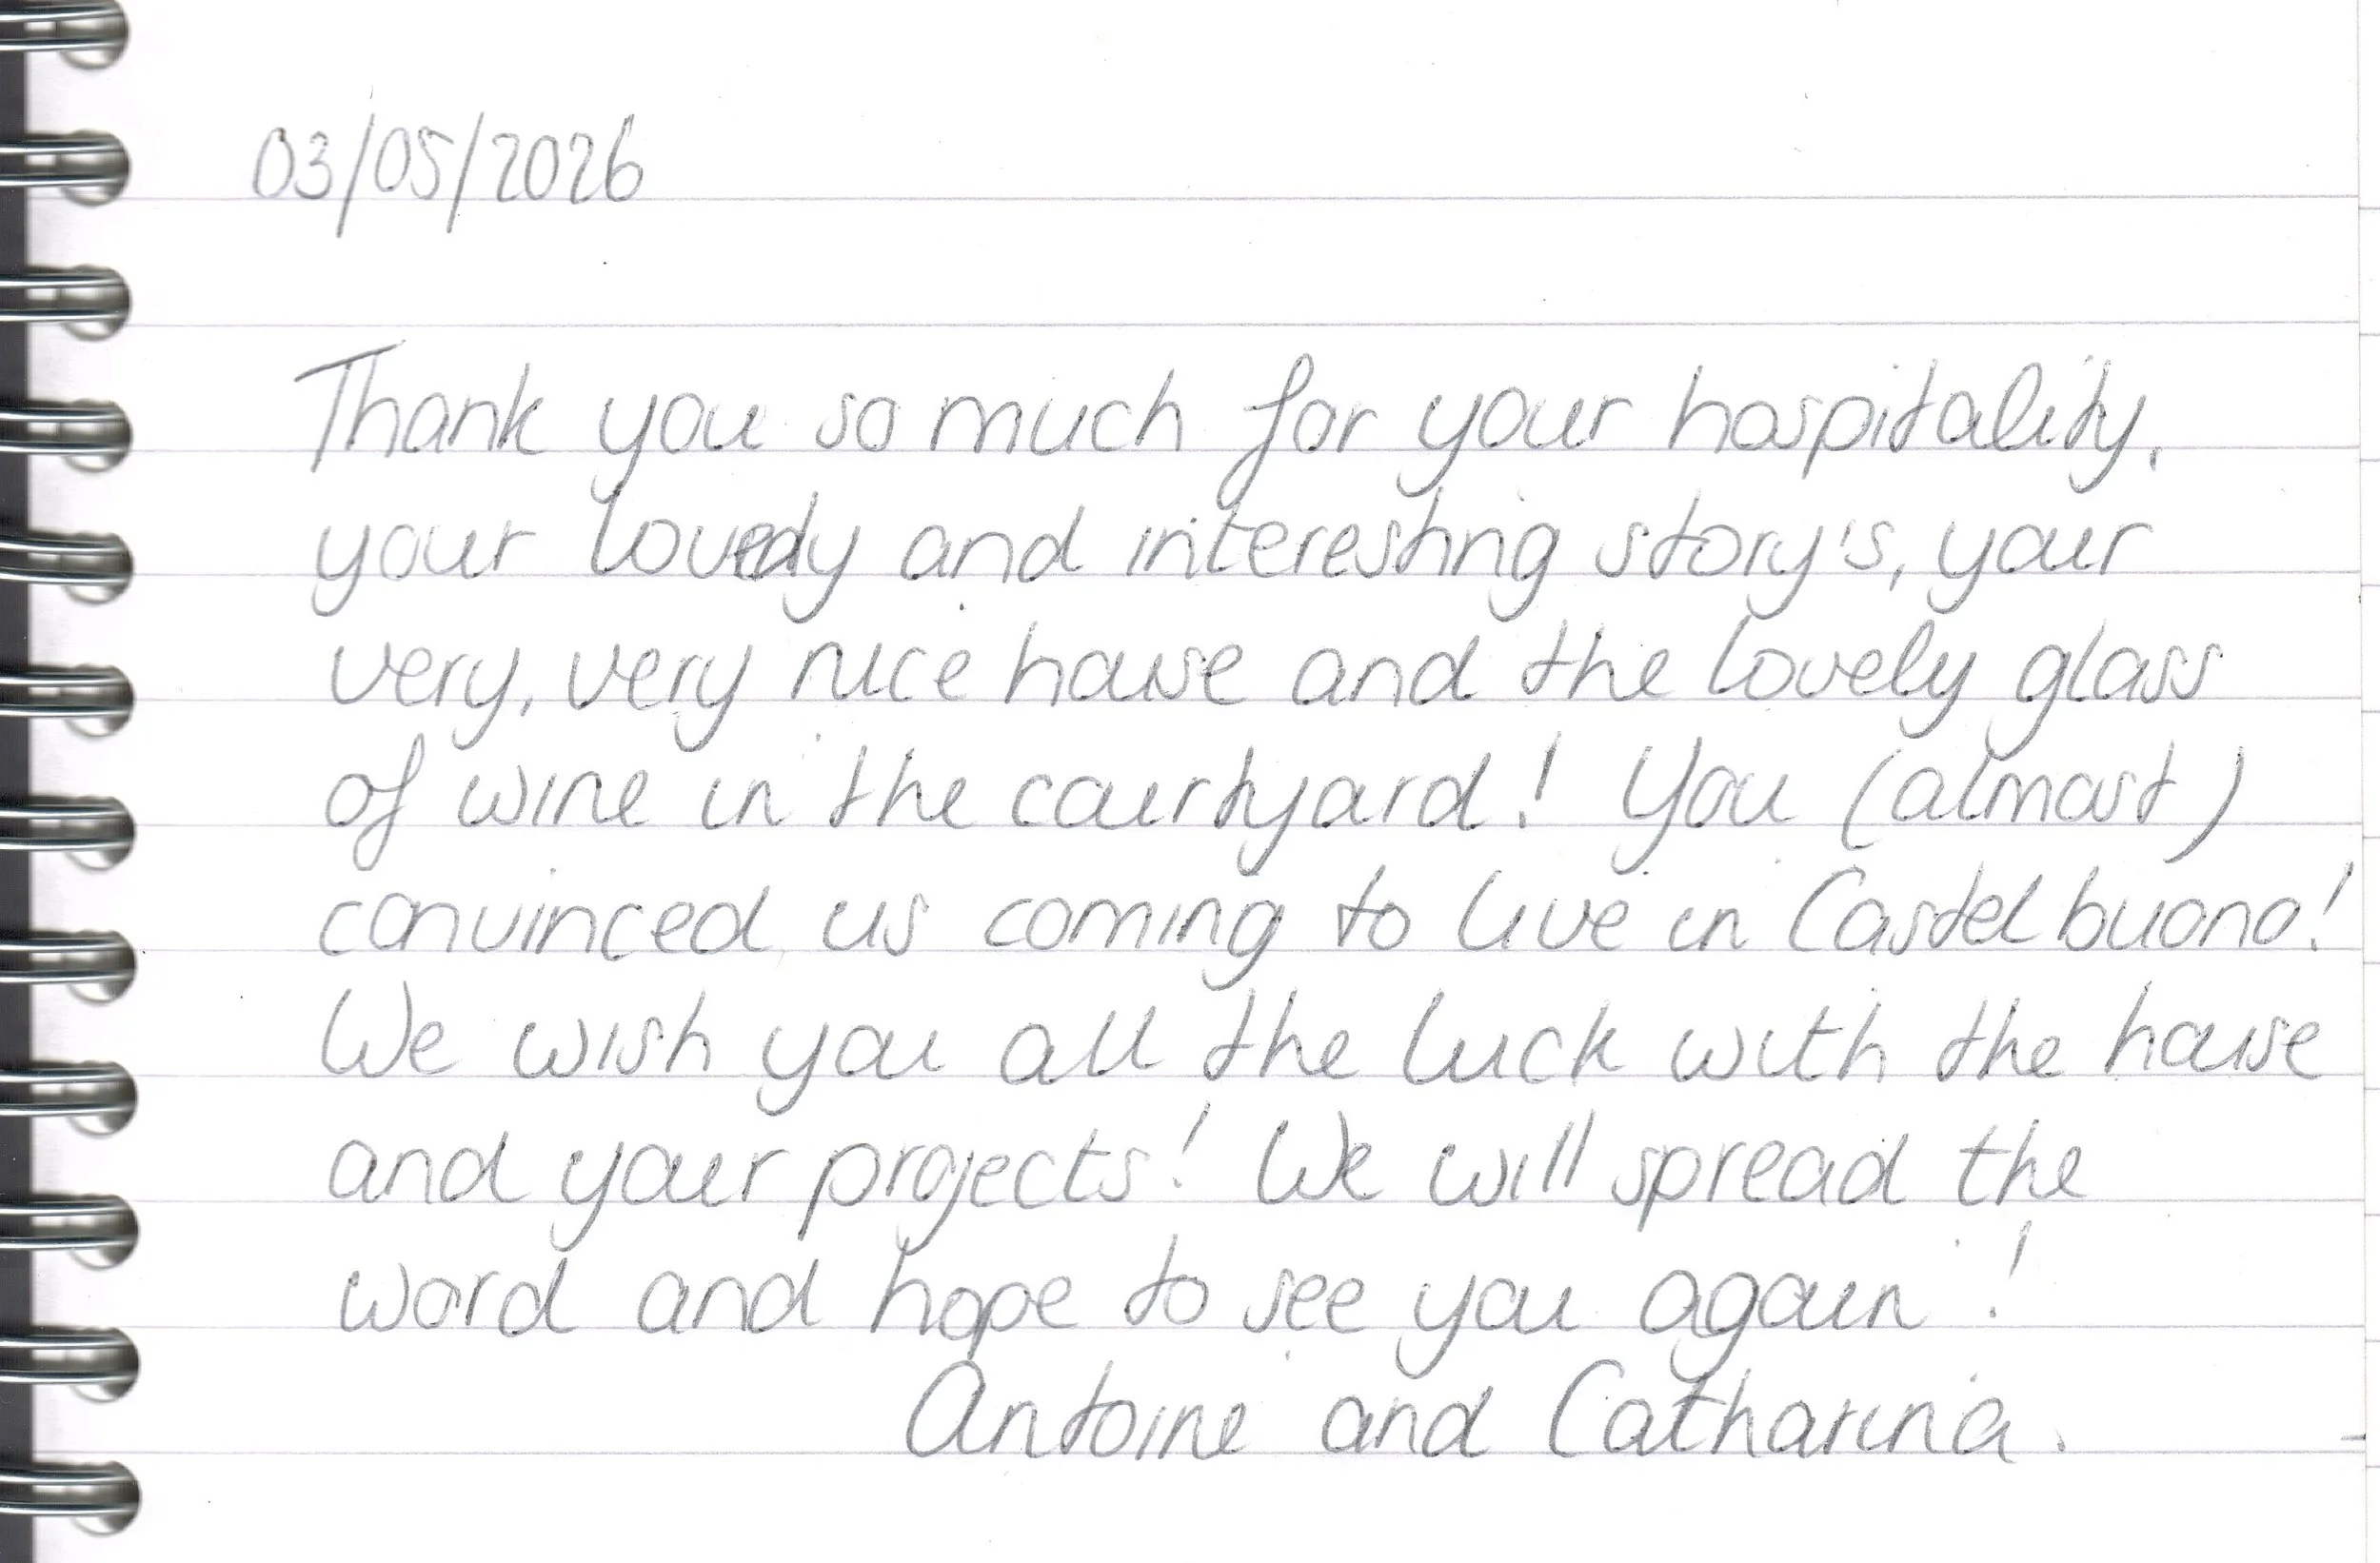 03/05/2026
Thank you so much for your hospitality,
your lovely and interesting story's, your
very, very nice house and the lovely glass
of wine in the courtyard! You (almost)
convinced us coming to live in Castelbuono!
We wish you all the luck with the house
and your projects! We will spread the
word and hope to see you again!
Antoine and Catharina.